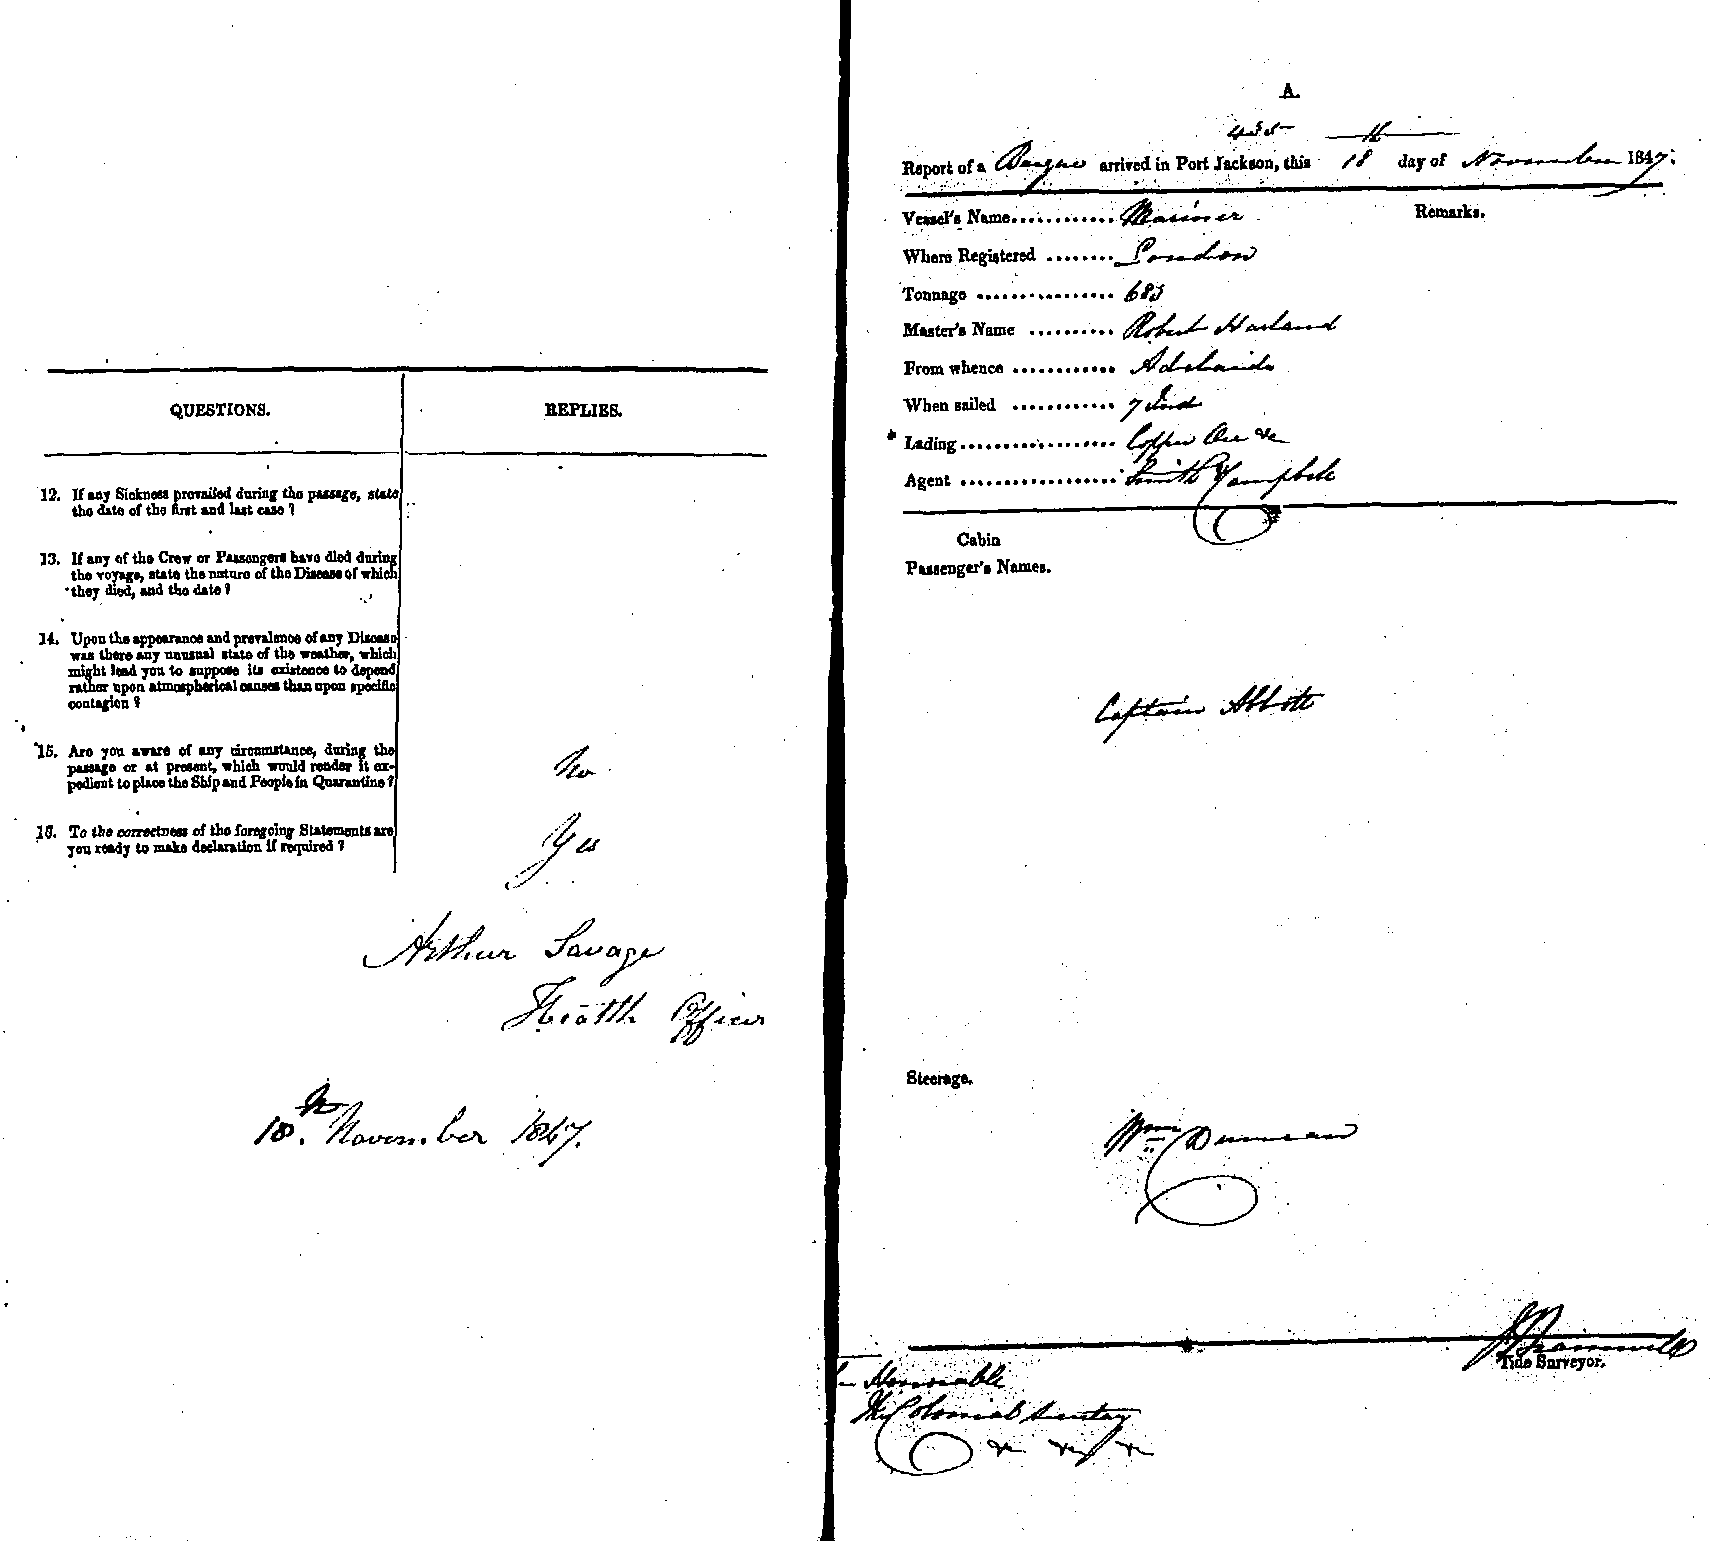 QUESTIONS.
REPLIES.
12. If any Sickness prevailed during the passage, state
the date of the first and last case ?
13. If any of the Crew or Passengers have died during
the voyage, state the nature of the Disease of which
they died, and the date ?
14. Upon the appearance and prevalence of any Disease
was there any unusual state of the weather, which
might lead you to suppose its existence to depend
rather upon atmospherical causes than upon specific
contagion ?
15. Are you aware of any circumstance, during the
passage or at present, which would render it ex-
pedient to place the Ship and People in Quarantine ?
No
16. To the correctness of the foregoing Statements are
you ready to make declaration if required ?
Yes
Arthur Savage
Health Officer
18th November 1847.
A.
455
Report of a Barque arrived in Port Jackson, this 18th day of November 1847.
Vessel's Name............ Mariner
Remarks.
Where Registered ........ London
Tonnage ................ 683
Master's Name .......... Robert Harland
From whence ............ Adelaide
When sailed ............ 7 Ind
* Lading.................. Copper Ore &c
Agent .................. Smith Campbell
Cabin
Passenger's Names.
Captain Abbott
Steerage.
Wm Duncan
Tide Surveyor.
Honorable
The Colonial Secretary
&c &c &c